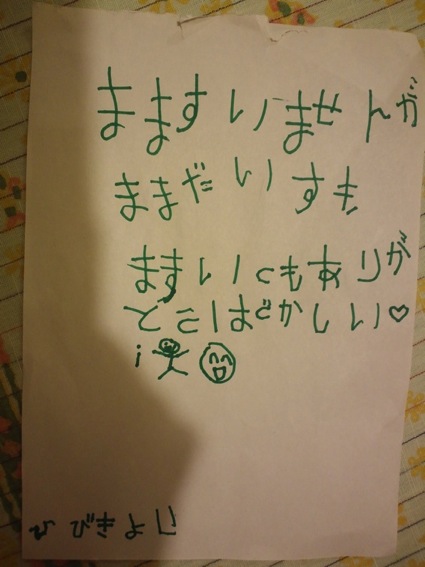 まますいませんが
ままだいすき
ますいくもありが
とこしはどかしい♡
ひびきより